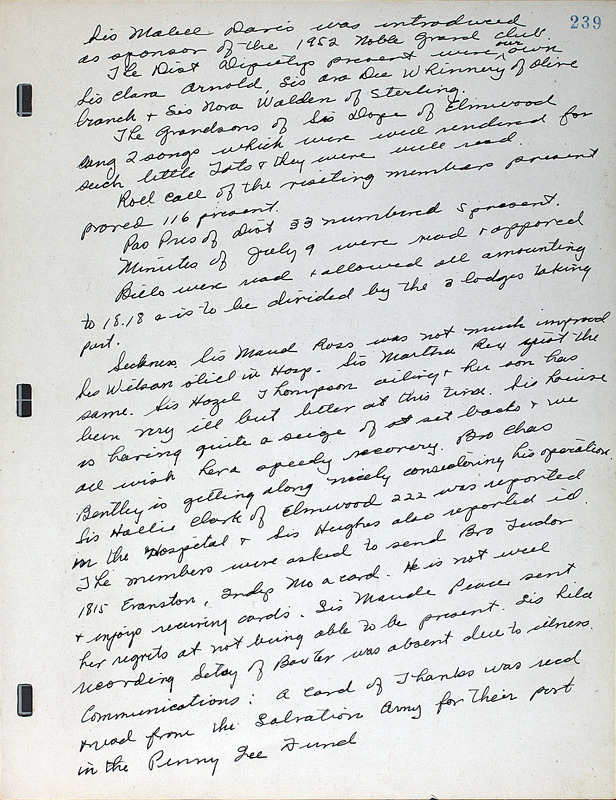 239
Sis Mabell Davis was introduced
as sponsor of the 1952 Noble Grand club.
The Dist Diputys present were our own
Sis Clara Arnold, Sis Ora Dee Whinnery of Olive
branch + Sis Nora Walden of Sterling.
The Grandsons of Sis Dope of Elmwood
sang 2 songs which were well rendered for
such little Tots + they were well read.
Roll call of the visiting members present
proved 116 present.
Pas Pres of Dist 33 numbered 5 present.
Minutes of July 9 were read + appored
Bills were read + allowed all amounting
to 18.18 a is to be divided by the 3 lodges taking
part.
Sickness. Sis Maud Ross was not much improved
Sis Wilson still in Hosp. Sis Martha Rex just the
same. Sis Hazel Thompson ailing + her son has
been very ill but better at this time. Sis
is having quite a seige of set backs + we
all wish her a speedy recovery. Bro Chas
Bentley is getting along nicely considering his operation
Sis Hallie Clark of Elmwood 222 was reported
in the Hospital + Sis Hughes also reported ill.
The members were asked to send Bro Tudor
1815 Evanston, Indep Mo a card. He is not well
+ enjoys reciving cards. Sis Maude Peace sent
her regrets at not being able to be present. Sis
recording Setay of Baxter was absent due to illness.
Communications: A card of Thanks was
read from the Salvation Army for their part
in the Penny Ice Fund